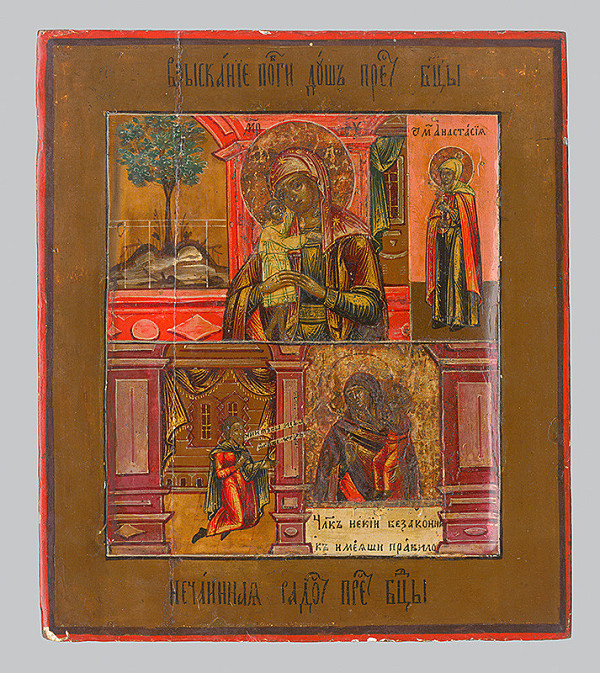 взысканїе погги душъ прес҃ бц҃ы
МР ѲУ
м҃ Анастасїя
Члк҃ъ некїи безаконни
къ имеяши правило
нечаинная радос҃ прес҃ бц҃ы